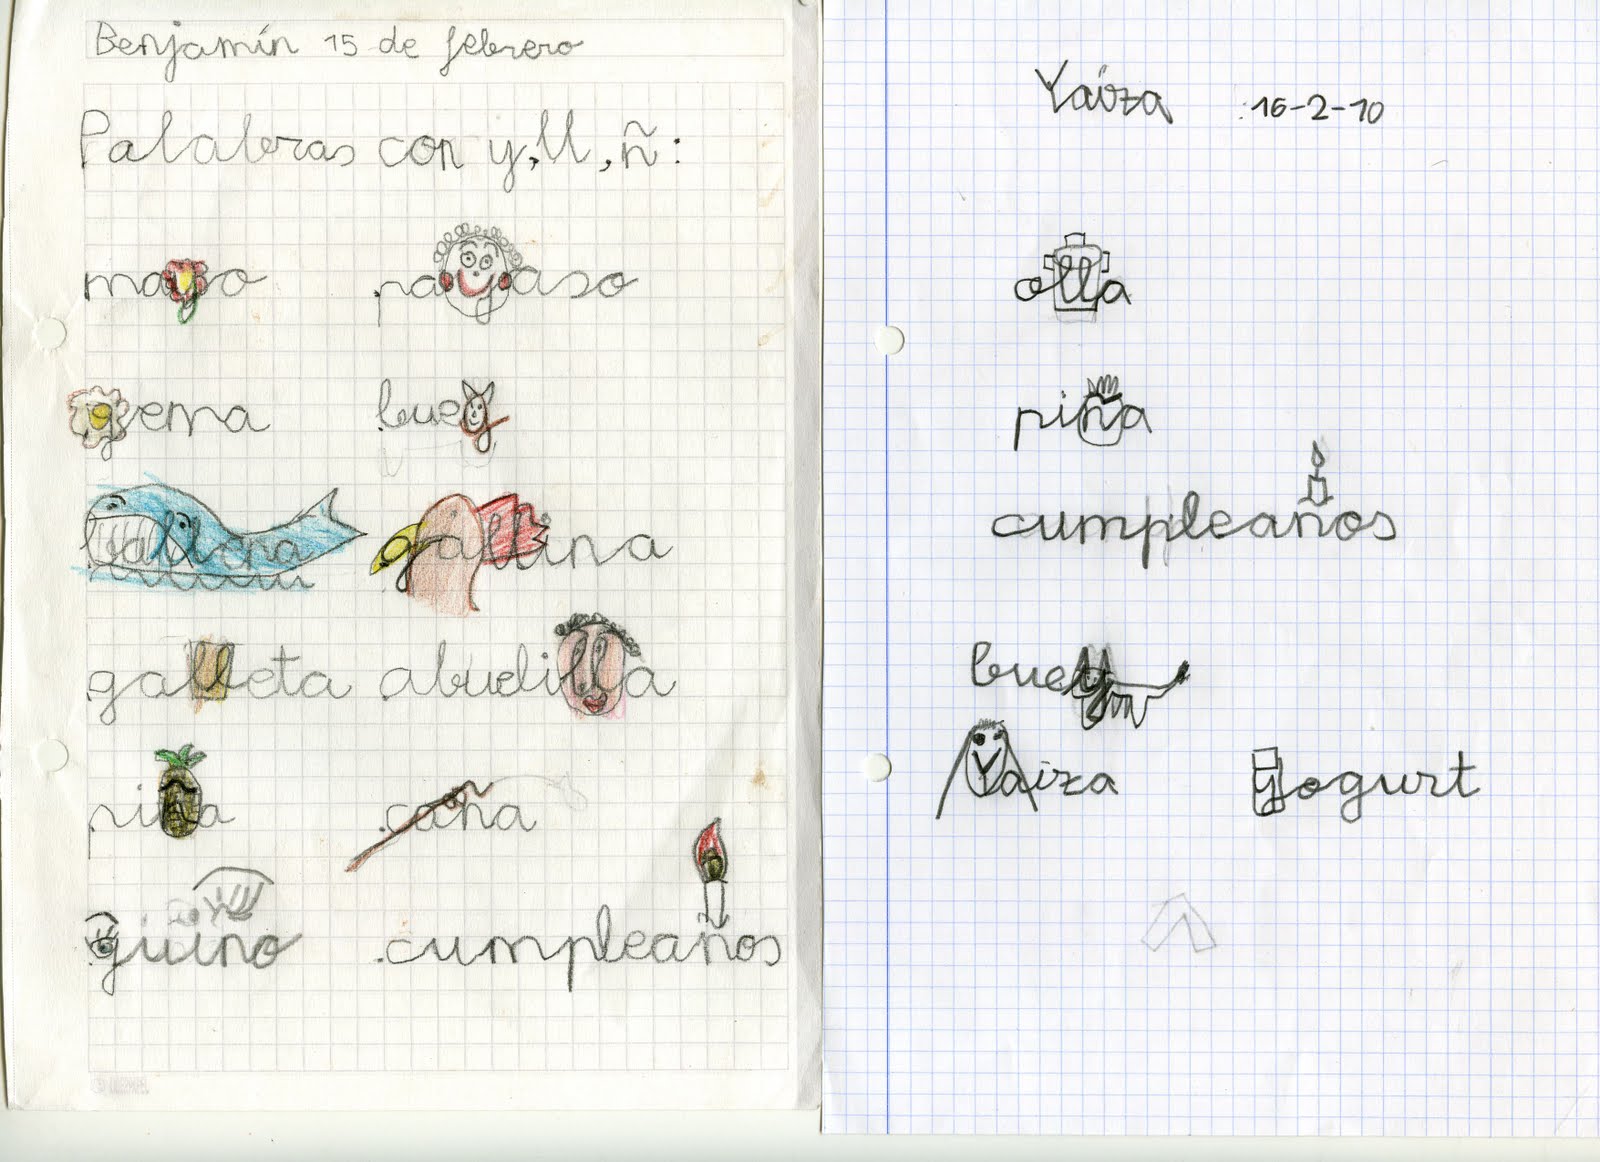 Benjamín 15 de febrero
Palabras con y, ll, ñ:
mayo payaso
yema buey
ballena gallina
galleta abudilla
piña caña
guiño cumpleaños
Yaiza 16-2-10
olla
piña
cumpleaños
buey
Yaiza yogurt